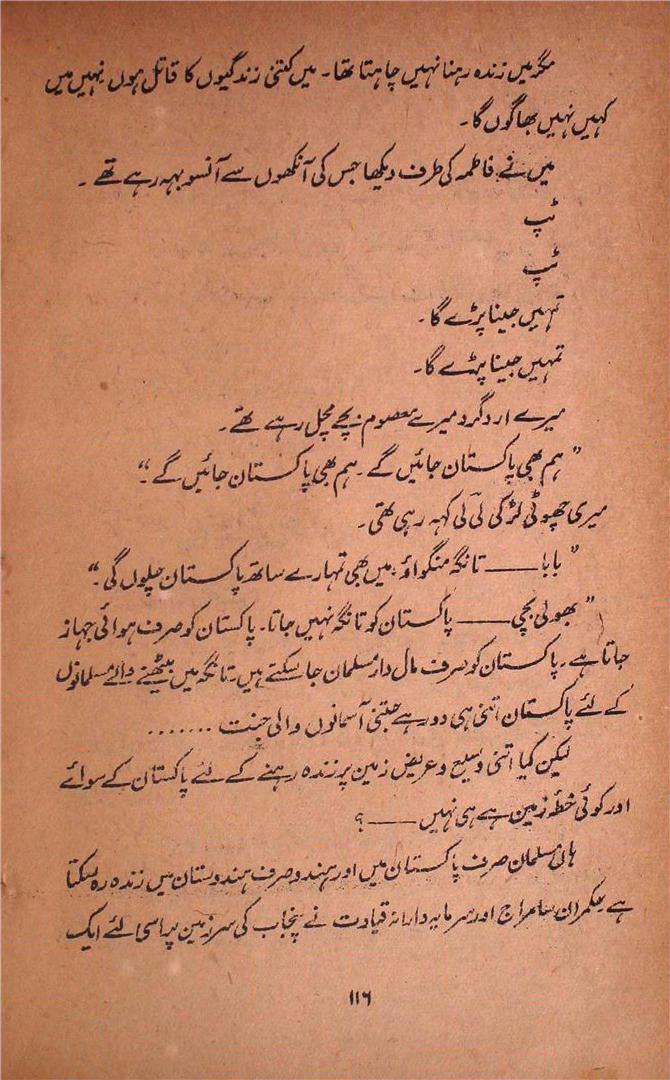 مگر میں زندہ رہنا نہیں چاہتا تھا۔ میں کتنی زندگیوں کا قاتل ہوں نہیں میں
کہیں نہیں بھاگوں گا۔
میں نے فاطمہ کی طرف دیکھا جس کی آنکھوں سے آنسو بہہ رہے تھے۔
ٹپ
ٹپ
تمہیں جینا پڑے گا۔
تمہیں جینا پڑے گا۔
میرے ارد گرد میرے معصوم بچے مچل رہے تھے۔
"ہم بھی پاکستان جائیں گے۔ ہم بھی پاکستان جائیں گے۔"
میری چھوٹی لڑکی لی لی کہہ رہی تھی۔
"بابا —— تانگہ منگواؤ، میں بھی تمہارے ساتھ پاکستان چلوں گی۔"
"بھولی بچی —— پاکستان کو تانگہ نہیں جاتا۔ پاکستان کو صرف ہوائی جہاز
جاتا ہے۔ پاکستان کو صرف مال دار مسلمان جا سکتے ہیں۔ تانگہ میں بیٹھنے والے مسلمانوں
کے لئے پاکستان اتنی ہی دور ہے جتنی آسمانوں والی جنت ۔۔۔۔۔۔۔
لیکن کیا اتنی وسیع و عریض زمین پر زندہ رہنے کے لئے پاکستان کے سوائے
اور کوئی خطۂ زمین ہے ہی نہیں ——؟
ہاں مسلمان صرف پاکستان میں اور ہندو صرف ہندوستان میں زندہ رہ سکتا
ہے۔ حکمران سامراج اور سرمایہ دارانہ قیادت نے پنجاب کی سرزمین پر اسی لئے ایک
۱۱۶